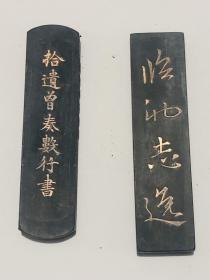 拾遺曾奏數行書
臨池志逸